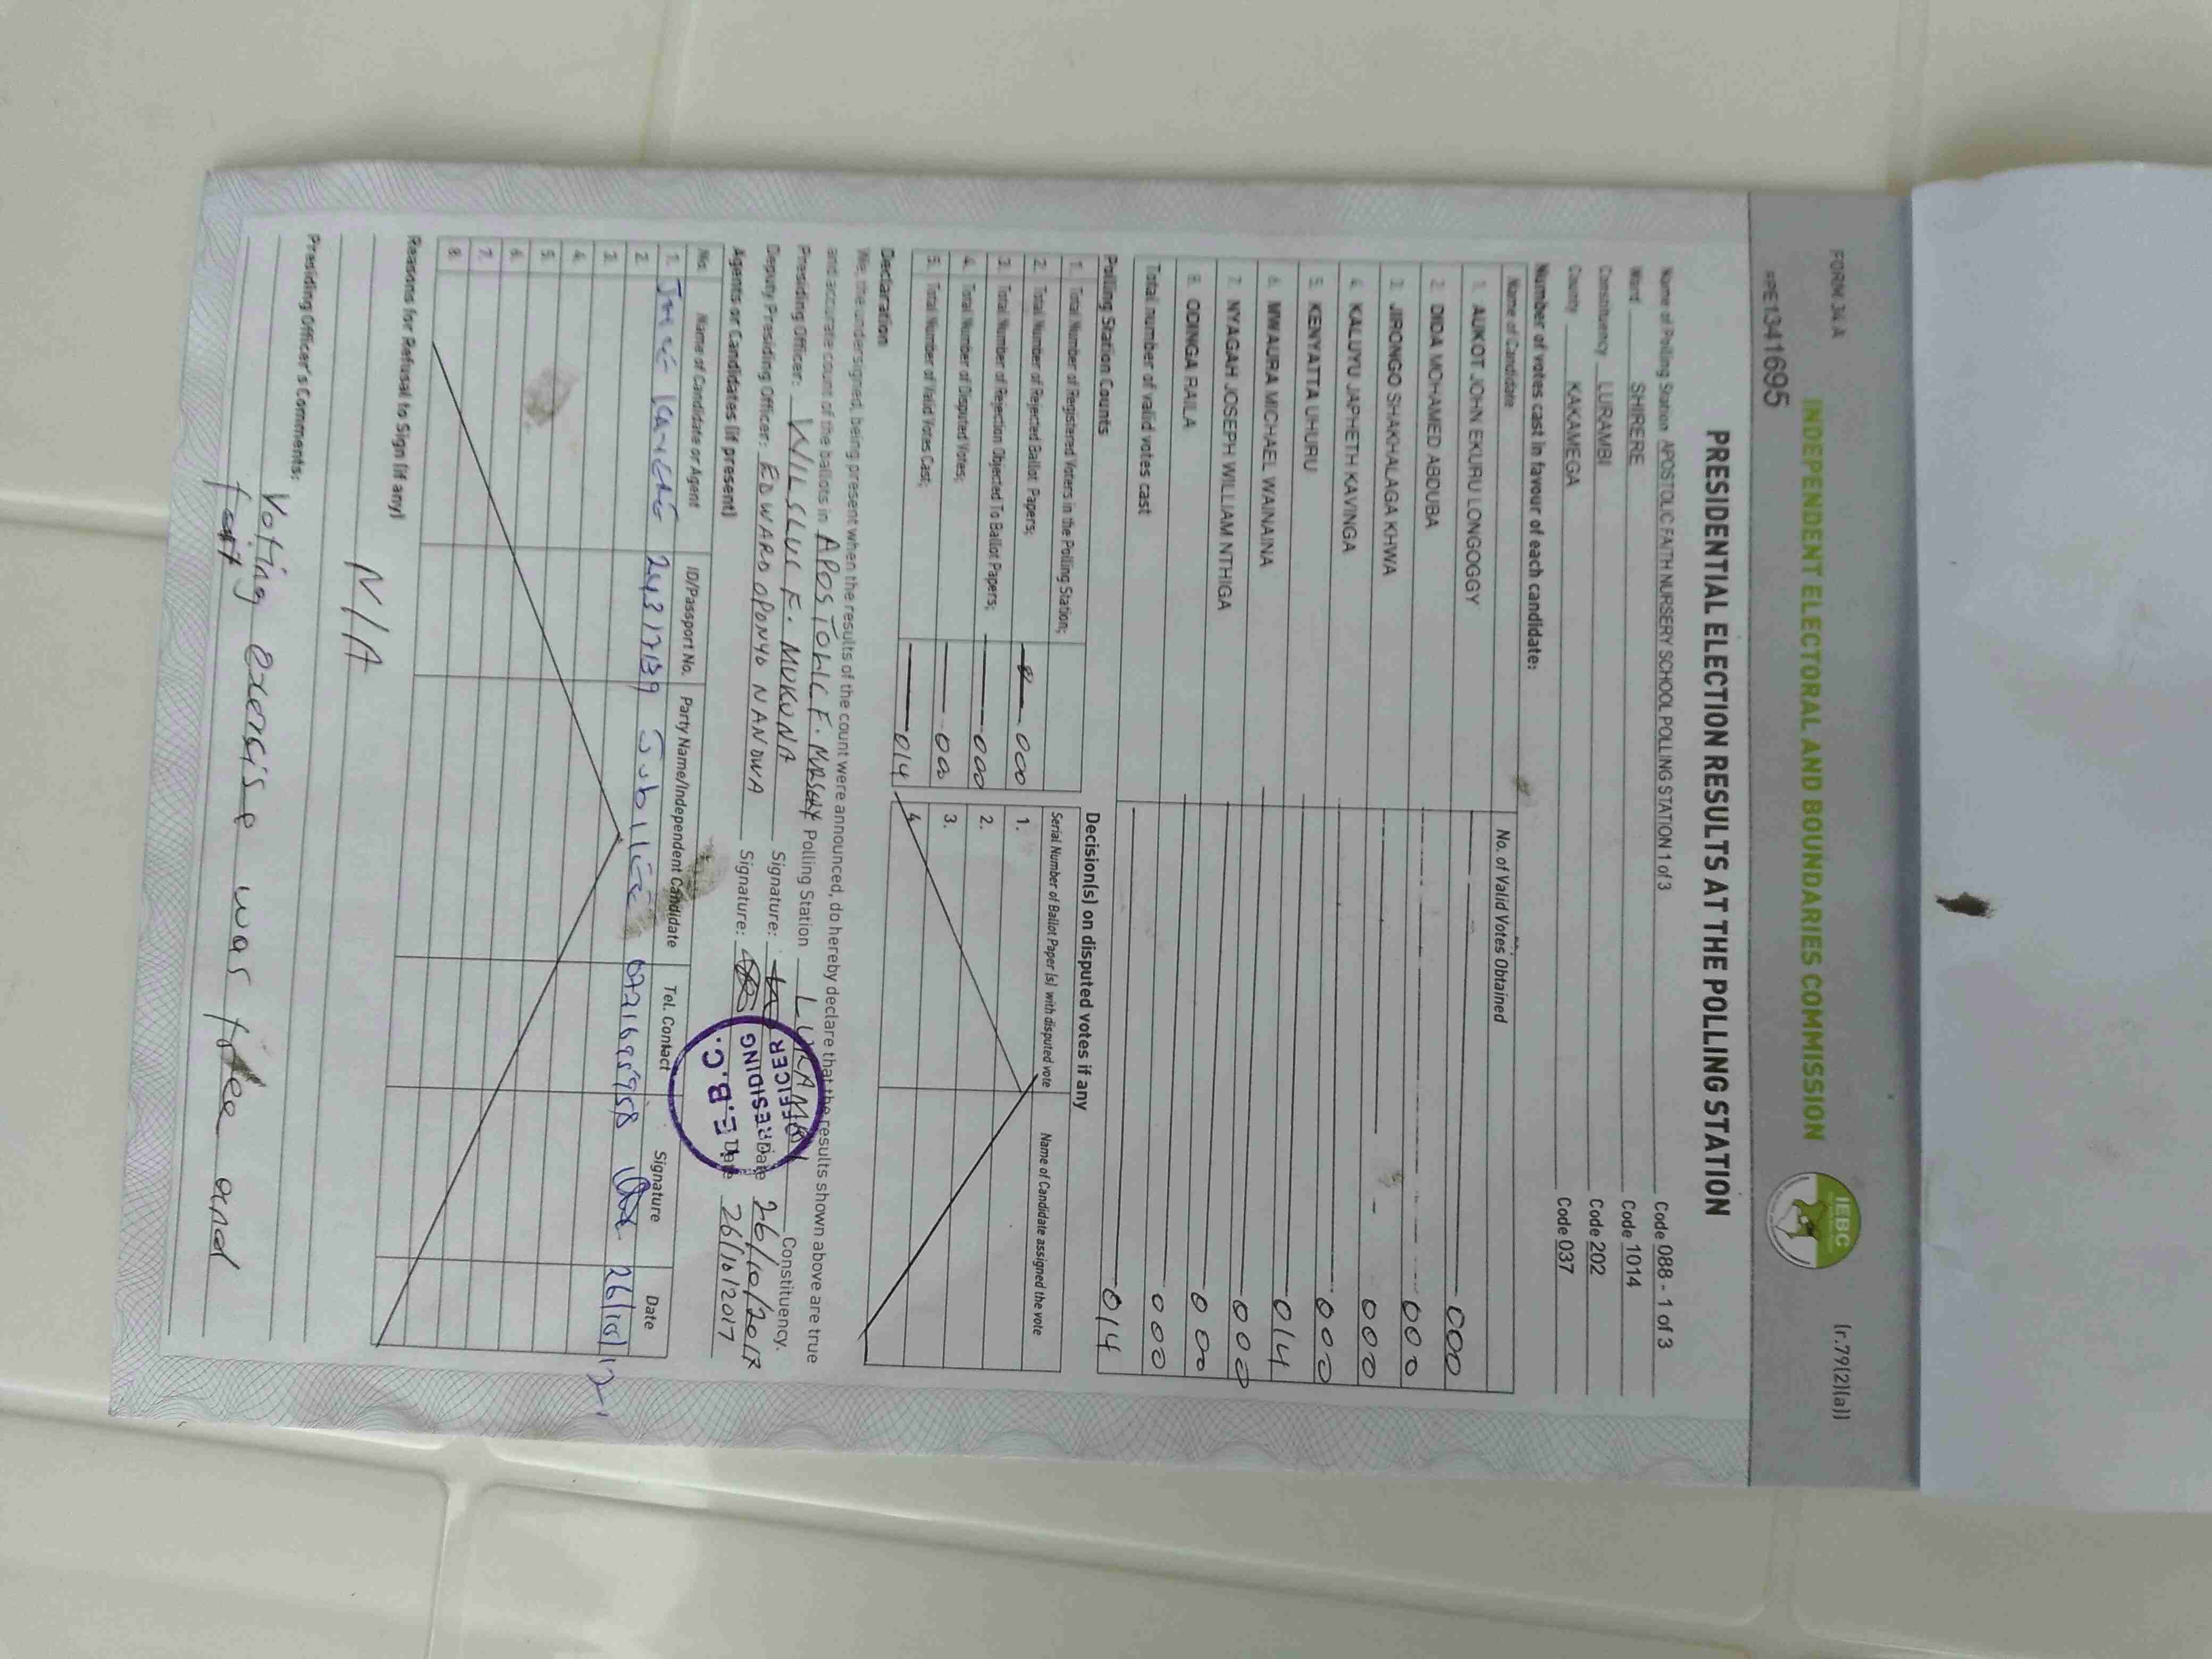 FORM 34 A
INDEPENDENT ELECTORAL AND BOUNDARIES COMMISSION
IEBC
(r.79(2)(a))
PRESIDENTIAL ELECTION RESULTS AT THE POLLING STATION
Name of Polling Station APOSTOLIC FAITH NURSERY SCHOOL POLLING STATION 1 of 3 Code 088 - 1 of 3
Ward SHIRERE Code 1014
Constituency LURAMBI Code 202
County KAKAMEGA Code 037
Number of votes cast in favour of each candidate:
Name of Candidate No. of Valid Votes Obtained
1. AUKOT JOHN EKURU LONGOGGY 000
2. DIDA MOHAMED ABDUBA 000
3. JIRONGO SHAKHALAGA KHWA 000
4. KALUYU JAPHETH KAVINGA 000
5. KENYATTA UHURU 014
6. MWAURA MICHAEL WAINAINA 000
7. NYAGAH JOSEPH WILLIAM NTHIGA 000
8. ODINGA RAILA 000
Total number of valid votes cast 014
Polling Station Counts
1. Total Number of Registered Voters in the Polling Station;
2. Total Number of Rejected Ballot Papers; 000
3. Total Number of Rejection Objected To Ballot Papers; 000
4. Total Number of Disputed Votes; 00
5. Total Number of Valid Votes Cast; 014
Decision(s) on disputed votes if any
Serial Number of Ballot Paper (s) with disputed vote Name of Candidate assigned the vote
1.
2.
3.
4.
Declaration
We, the undersigned, being present when the results of the count were announced, do hereby declare that the results shown above are true
and accurate count of the ballots in APOSTOLIC F. NURSERY Polling Station LURAMBI Constituency.
Presiding Officer: F. MUKUNA Signature: Date 26/10/2017
Deputy Presiding Officer: EDWARD OPONYO NANDWA Signature: Date 26/10/2017
I.E.B.C.
PRESIDING
OFFICER
Agents or Candidates (if present)
No. Name of Candidate or Agent ID/Passport No. Party Name/Independent Candidate Tel. Contact Signature Date
1. Jubilee 26/10/17
2.
3.
4.
5.
6.
7.
8.
Reasons for Refusal to Sign (if any)
N/A
Presiding Officer's Comments:
Voting exercise was free and